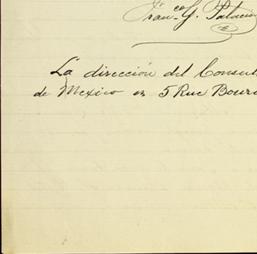 Fran.co G. Palacio
La dirección del Consul
de Mexico es 5 Rue Bour